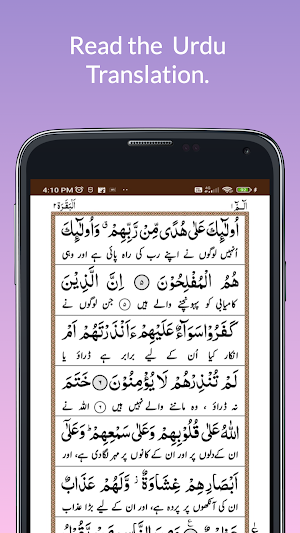 Read the Urdu
Translation.
4:10 PM
الٓمّٓ ١
اَلْبَقَرَة ٢
اُولٰٓئِكَ عَلٰى هُدًى مِّنْ رَّبِّهِمْ ۙ وَاُولٰٓئِكَ
انہیں لوگوں نے اپنے رب کی راہ پائی ہے اور وہی
هُمُ الْمُفْلِحُوْنَ ۝۵ اِنَّ الَّذِيْنَ
کامیابی کو پہونچنے والے ہیں ۵ جن لوگوں نے
كَفَرُوْا سَوَآءٌ عَلَيْهِمْ ءَاَنْذَرْتَهُمْ اَمْ
انکار کیا اُن کے لیے برابر ہے ڈراؤ یا
لَمْ تُنْذِرْهُمْ لَا يُؤْمِنُوْنَ ۝۶ خَتَمَ
نہ ڈراؤ ، وہ ماننے والے نہیں ہیں ۶ اللہ نے
اللّٰهُ عَلٰى قُلُوْبِهِمْ وَعَلٰى سَمْعِهِمْ ؕ وَعَلٰٓى
ان کے دلوں پر اور ان کے کانوں پر مہر لگادی ہے، اور
اَبْصَارِهِمْ غِشَاوَةٌ ؗ وَّلَهُمْ عَذَابٌ
ان کی آنکھوں پر پردہ ہے، اور ان کے لیے بڑا عذاب